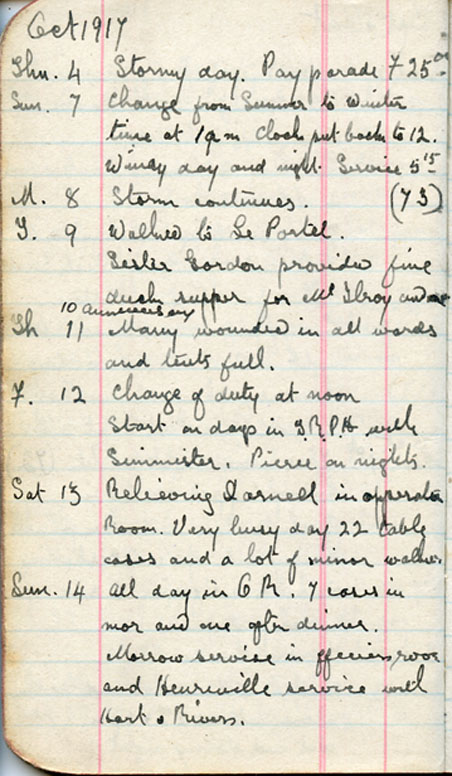 Oct 1917
Thu. 4 Stormy day. Pay parade F 25.00
Sun. 7 Change from Summer to Winter
time at 1 am Clock put back to 12.
Windy day and night. Service 5 15
M. 8 Storm continues. (73)
T. 9 Walked to Le Portel.
Sister Gordon provided fine
duck supper for Mc Ilroy and me
10 anniversary
Th 11 Many wounded in all wards
and tents full.
F. 12 Change of duty at noon
Start on days in I.R.P.H with
Simmister. Pierce on nights.
Sat 13 Relieving Darnell in operation
Room. Very busy day 22 table
cases and a lot of minor walkers
Sun. 14 All day in O R. 7 cases in
mor and one after dinner.
Morrow service in officers room
and Henriville service with
Hart & Rivers.